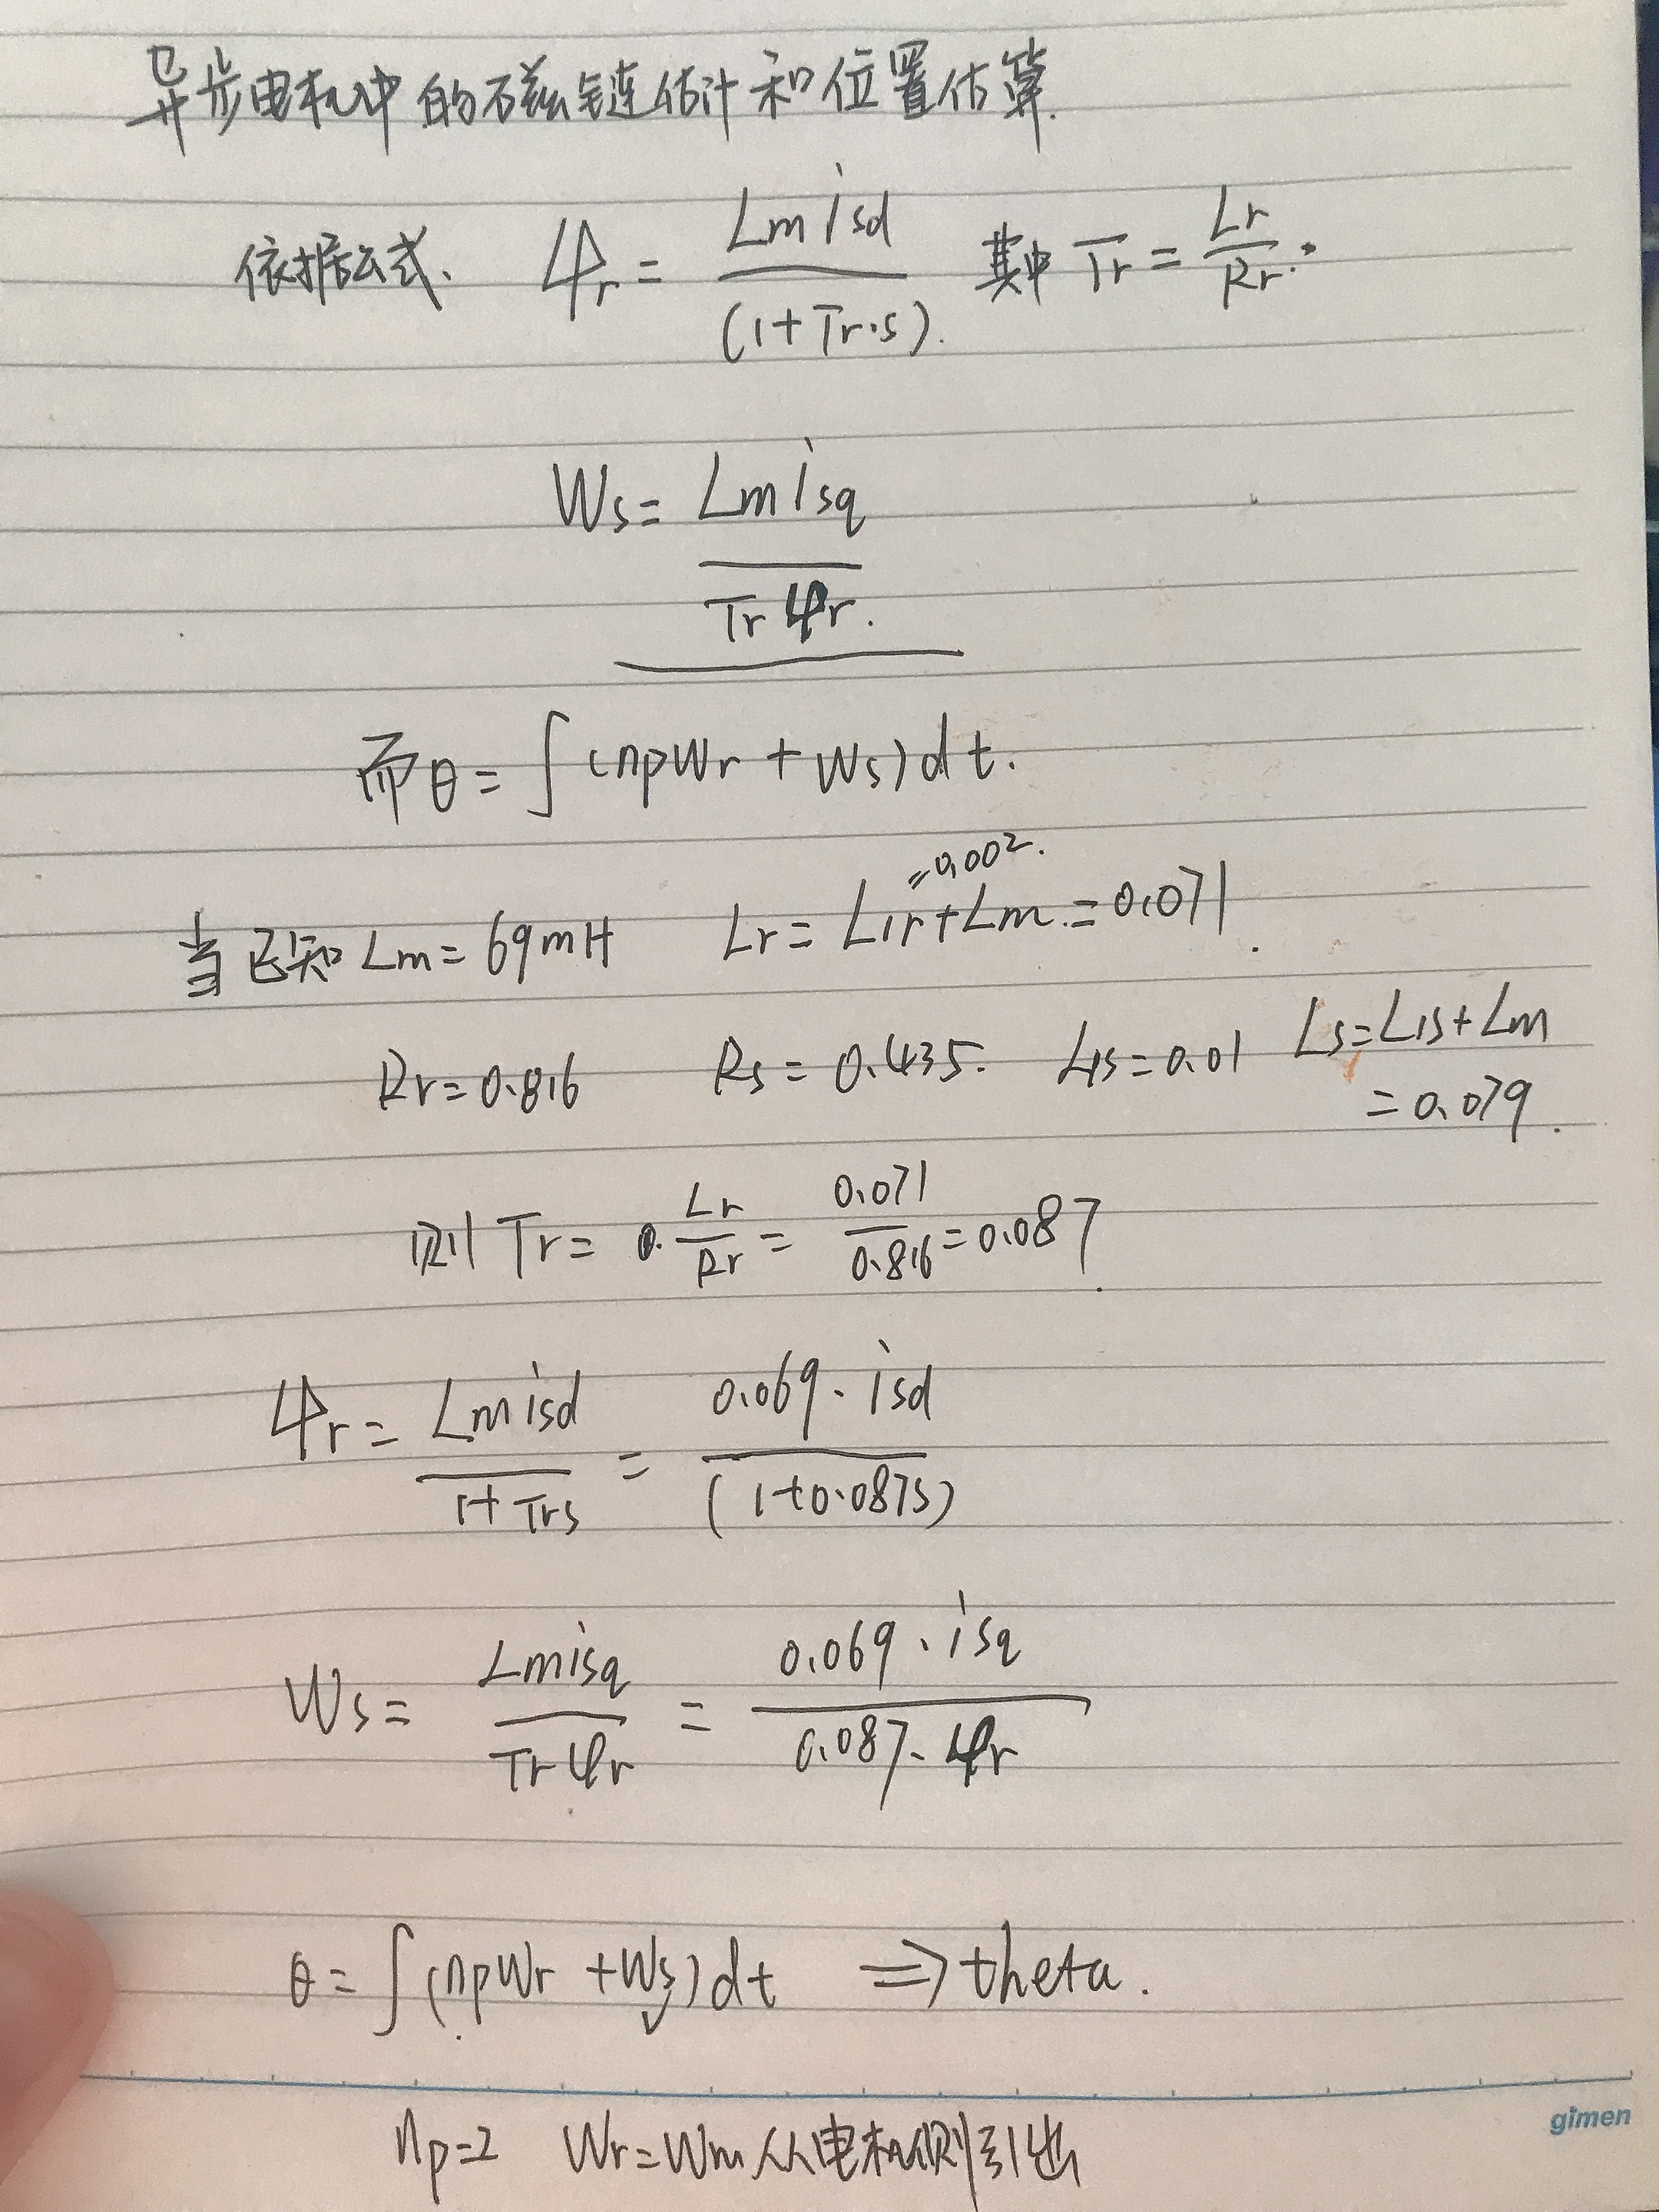 异步电机中的磁链估计和位置估算.
依据公式、 ψr = Lm isd / (1+Tr·s). 其中 Tr = Lr / Rr.
Ws = Lm isq / Tr ψr.
而 θ = ∫(npWr + Ws)dt.
=0.002.
当已知 Lm = 69mH Lr = L1r+Lm = 0.071.
Rr=0.816 Rs = 0.435. L1s=0.01 Ls=L1s+Lm
=0.079.
则 Tr = 0. Lr / Rr = 0.071 / 0.816 = 0.087.
ψr = Lm isd / 1+Trs = 0.069·isd / (1+0.087s)
Ws = Lm isq / Tr ψr = 0.069·isq / 0.087·ψr
θ = ∫(npWr +Ws)dt ⇒ theta.
gimen
np=2 Wr=Wm 从电机侧引出